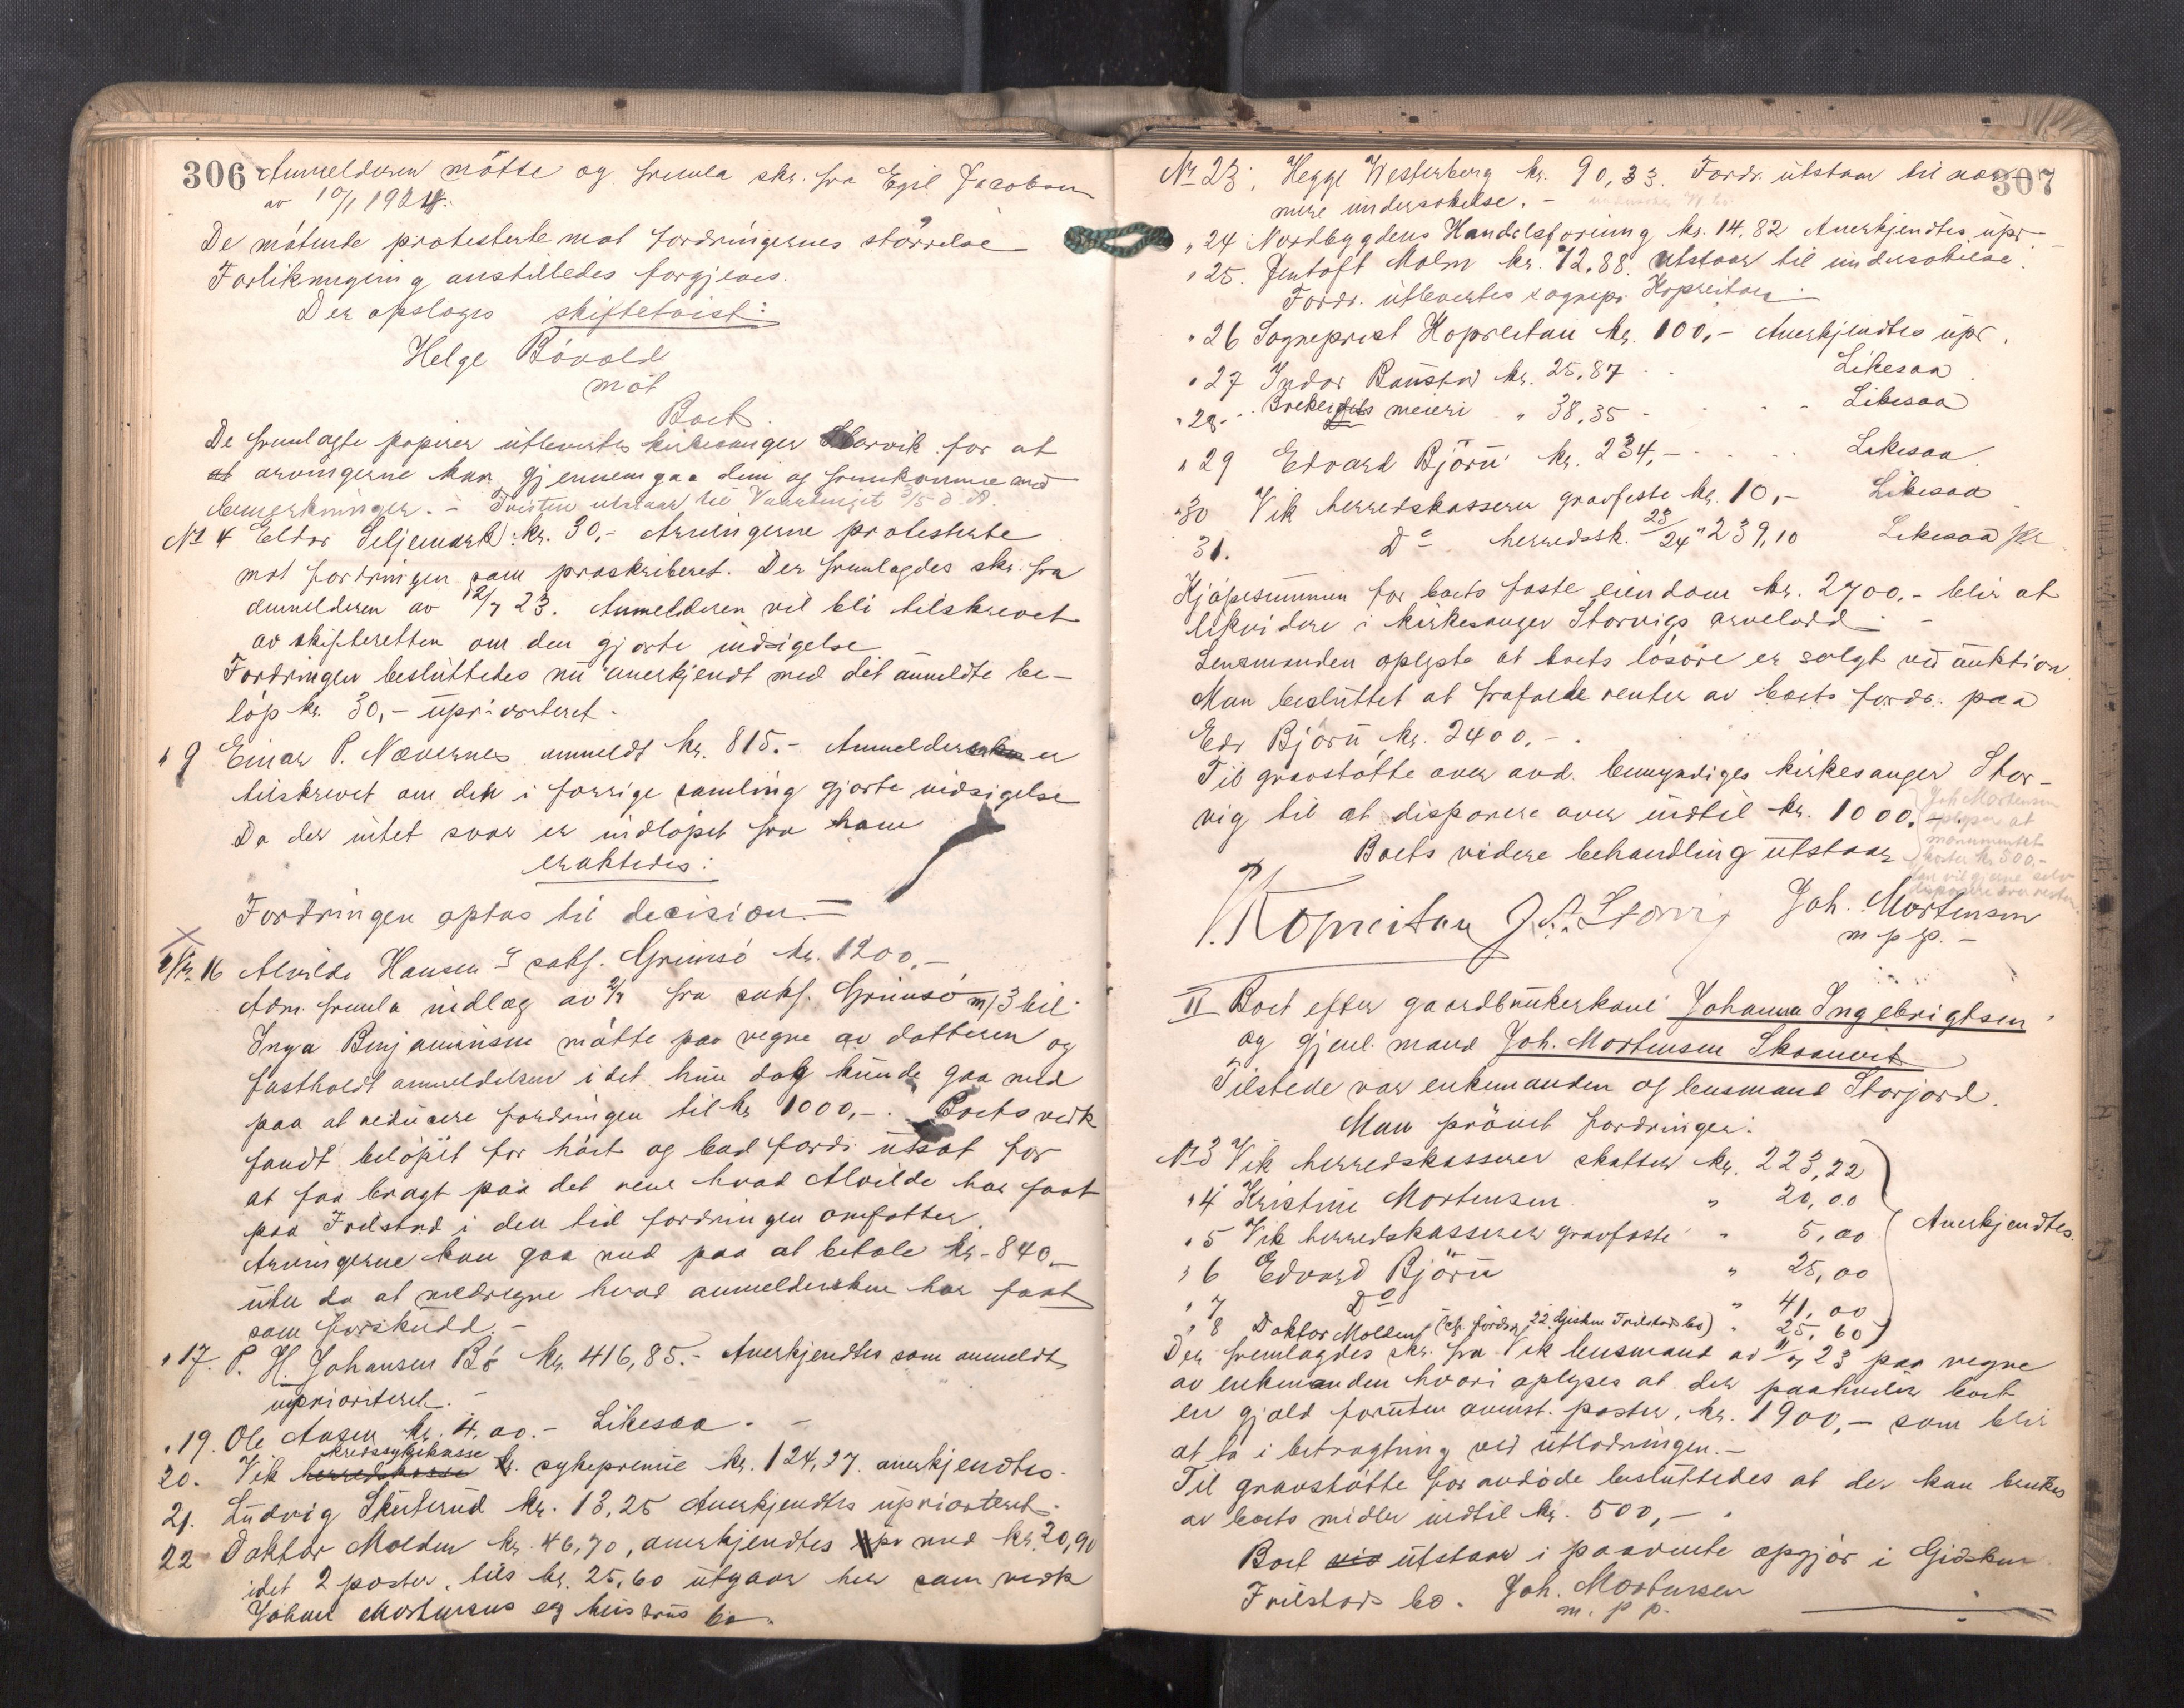 306 Anmelderen møtte og fremla skr. fra Egil Jacobsen
av 10/1 1924.
De møtende protesterte mot fordringernes størrelse
Forliksmegling anstilledes forgjeves.
Der opstages skiftetvist:
Helge Bóvold
mot
Boet.
De fremlagte papirer utlevertes kirkesanger Storvik for at
at arvingerne kan gjennemgaa dem og fremkomme med
bemerkninger. - Tvisten utstaar til Vaartinget 3/5 d. A.
No 4 Eldor Seljemark: kr. 30,- Arvingerne protesterte
mot fordringen som proskriberet. Der fremlagdes skr. fra
anmelderen av 12/7 23. Anmelderen vil bli tilskrevet
av skifteretten om den gjorte indsigelse
Fordringen besluttedes nu anerkjendt med det anmeldte be-
løp kr. 30,- uprioriteret.
" 9 Einar P. Nævernes anmeldt kr. 815.- Anmelderen er
tilskrevet om den i forrige samling gjorte indsigelse
Da der intet svar er indløpet fra ham
eraktedes:
Fordringen optas til decision. -
No. 16 Alvilde Hansen v/ saksf. Grimsó kr. 1200,-
Adm. fremla indlæg av 2/7 fra saksf. Grimsó m/3 bil.
Inga Benjaminsen møtte paa vegne av datteren og
fastholdt anmeldelsen idet hun dog kunde gaa med
paa at reducere fordringen til kr 1000,-. Boets vedk
fandt beløpet for høit og bad fordr. utsat for
at faa bragt paa det rene hvad Alvilde har faat
paa Frilstad i den tid fordringen omfatter.
Arvingerne kan gaa med paa at betale kr. 840,-
uten da at medregne hvad anmeldersken har faat
som forskudd. -
" 17. P. H. Johansen Bó kr. 416,85.- Anerkjendtes som anmeldt
uprioriteret. -
" 19. Ole Aasen kr. 4,00.- Likesaa. -
20. Vik herredskasse kredssykekasse kr. sykepremie kr. 124,27. anerkjendtes.
21. Ludvig Skuterud kr. 13,25 Anerkjendtes uprioriteret.
22 Doktor Molden kr. 46,70, anerkjendtes upr med kr. 20,90
idet 2 poster, tils kr. 25,60 utgaar her som vedk
Johan Mortensens og hustrus bo.
No 23. Hegge Westerberg kr. 90,33. Fordr. utstaar til nær- 307
mere undersøkelse. -
" 24 Nordbygdens Handelsforening kr. 14.82 Anerkjendtes upr. -
" 25. Jentoft Malm kr. 12.88. utstaar til undersøkelse.
Fordr. utlevertes sognepr. Kopreitan
" 26 Sogneprest Kopreitan kr. 100,- Anerkjendtes upr.
" 27 Indar Baustad kr. 25,87 . . Likesaa
" 28. . meieri " 38,35 - . . . Likesaa
" 29 Edvard Björu kr. 234,- . . . Likesaa.
" 30 Vik herredskasserer gravfeste kr. 10,- Likesaa
31. Do herredssk. 23/24 " 239,10 Likesaa pr
Kjøpesummen for boets faste eiendom kr. 2700.- blir at
likvidere i kirkesanger Storvigs arvelodd. -
Lensmanden oplyste at boets løsøre er solgt ved auktion.
Man besluttet at frafalde renter av boets fordr. paa
Edv Björu kr. 2400.-.
Til gravstøtte over avd. bemyndiges kirkesanger Stor-
vig til at disponere over indtil kr. 1000. -
Joh Mortensen
oplyser at
monumentet
koster kr 500,-
han vil gjerne selv
disponere over resten.
Boets videre behandling utstaar
Kopreitan J. A. Storvig Joh. Mortensen
m. p. p. -
II Boet efter gaardbrukerkone Johanna Ingebrigtsen
og gjenl. mand Joh. Mortensen Skaanvet
Tilstede var enkemanden og lensmand Storjord.
Man prøvet fordringer:
No 3 Vik herredskasserer skatter kr. 223,22
" 4 Kristine Mortensen " 20,00
" 5 Vik herredskasserer gravfeste " 5,00 Anerkjendtes.
" 6 Edvard Björu " 25,00
" 7 Do " 41,00
" 8 Doktor Molden (cfr. fordring 22 Gisken Frilstads bo) " 25,60
Der fremlagdes skr. fra Vik lensmand av 11/7 23 paa vegne
av enkemanden hvori oplyses at der paahviler boet
en gjæld foruten anmt. poster, kr. 1900,- som blir
at ta i betragtning ved utlodningen. -
Til gravstøtte for avdøde besluttedes at der kan brukes
av boets midler indtil kr. 500,-.
Boet utstaar i paavente opgjør i Gidsken
Frilstads bo. Joh. Mortensen
m. p p.